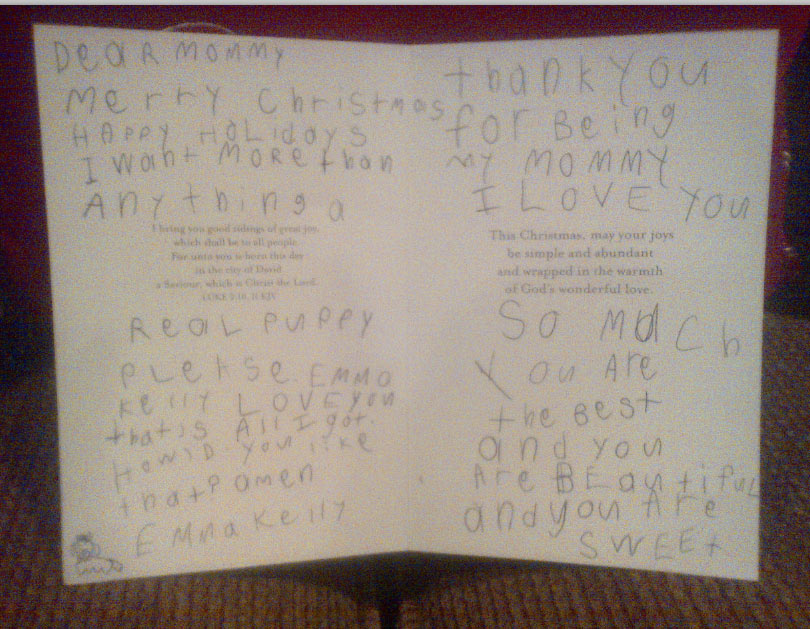 Dear Mommy
Merry Christmas
Happy Holidays
I want more than
Anything a
I bring you good tidings of great joy,
which shall be to all people.
For unto you is born this day
in the city of David
a Saviour, which is Christ the Lord.
LUKE 2:10, 11 KJV
Real puppy
please. Emma
Kelly LOVE you
that is All I got.
How'd you like
that? amen
Emma Kelly
thank you
for Being
my mommy
I LOVE you
This Christmas, may your joys
be simple and abundant
and wrapped in the warmth
of God's wonderful love.
So much
You Are
the Best
and you
Are BEautiful
and you Are
SWEEt